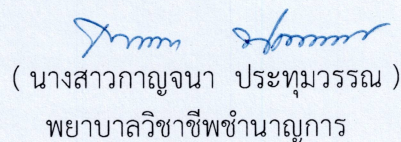 ( นางสาวกาญจนา ประทุมวรรณ )
พยาบาลวิชาชีพชำนาญการ